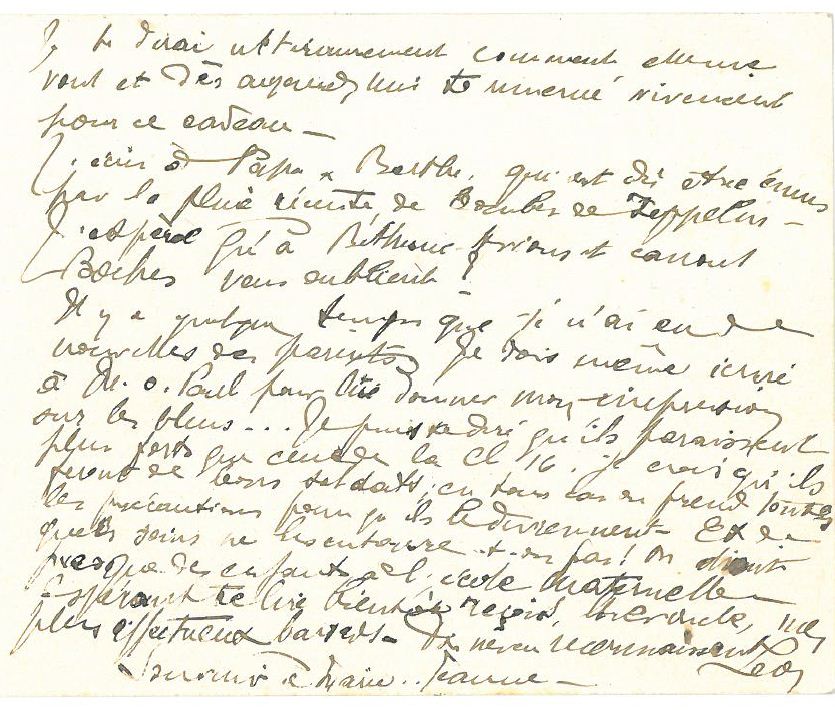 Je te dirai ultérieurement comment elle me
vont et dès aujourd'hui te remercie vivement
pour ce cadeau _
J'écris à Papa & Berthe, qui ont dû être émus
par la pluie récente de bombes de Zeppelins _
J'espère qu'à Béthune avions et canons
Boches vous oublient !
Il y a quelque temps que je n'ai eu de
nouvelles des parents. Je dois même écrire
à M. o. Paul pour lui donner mon impression
sur les bleus ... Je puis te dire qu'ils paraissent
plus forts que ceux de la Cl 16. Je crois qu'ils
feront de bons soldats ; en tous cas on prend toutes
les précautions pour qu'ils le deviennent _ Et de
quels soins ne les entoure-t-on pas ! On dirait
presque des enfants à l'école maternelle _
Espérant te lire bientôt reçois, oncle, mes
plus affectueux baisers _ Ton neveu reconnaissant
Léon
Souvenir à Marie-Jeanne _